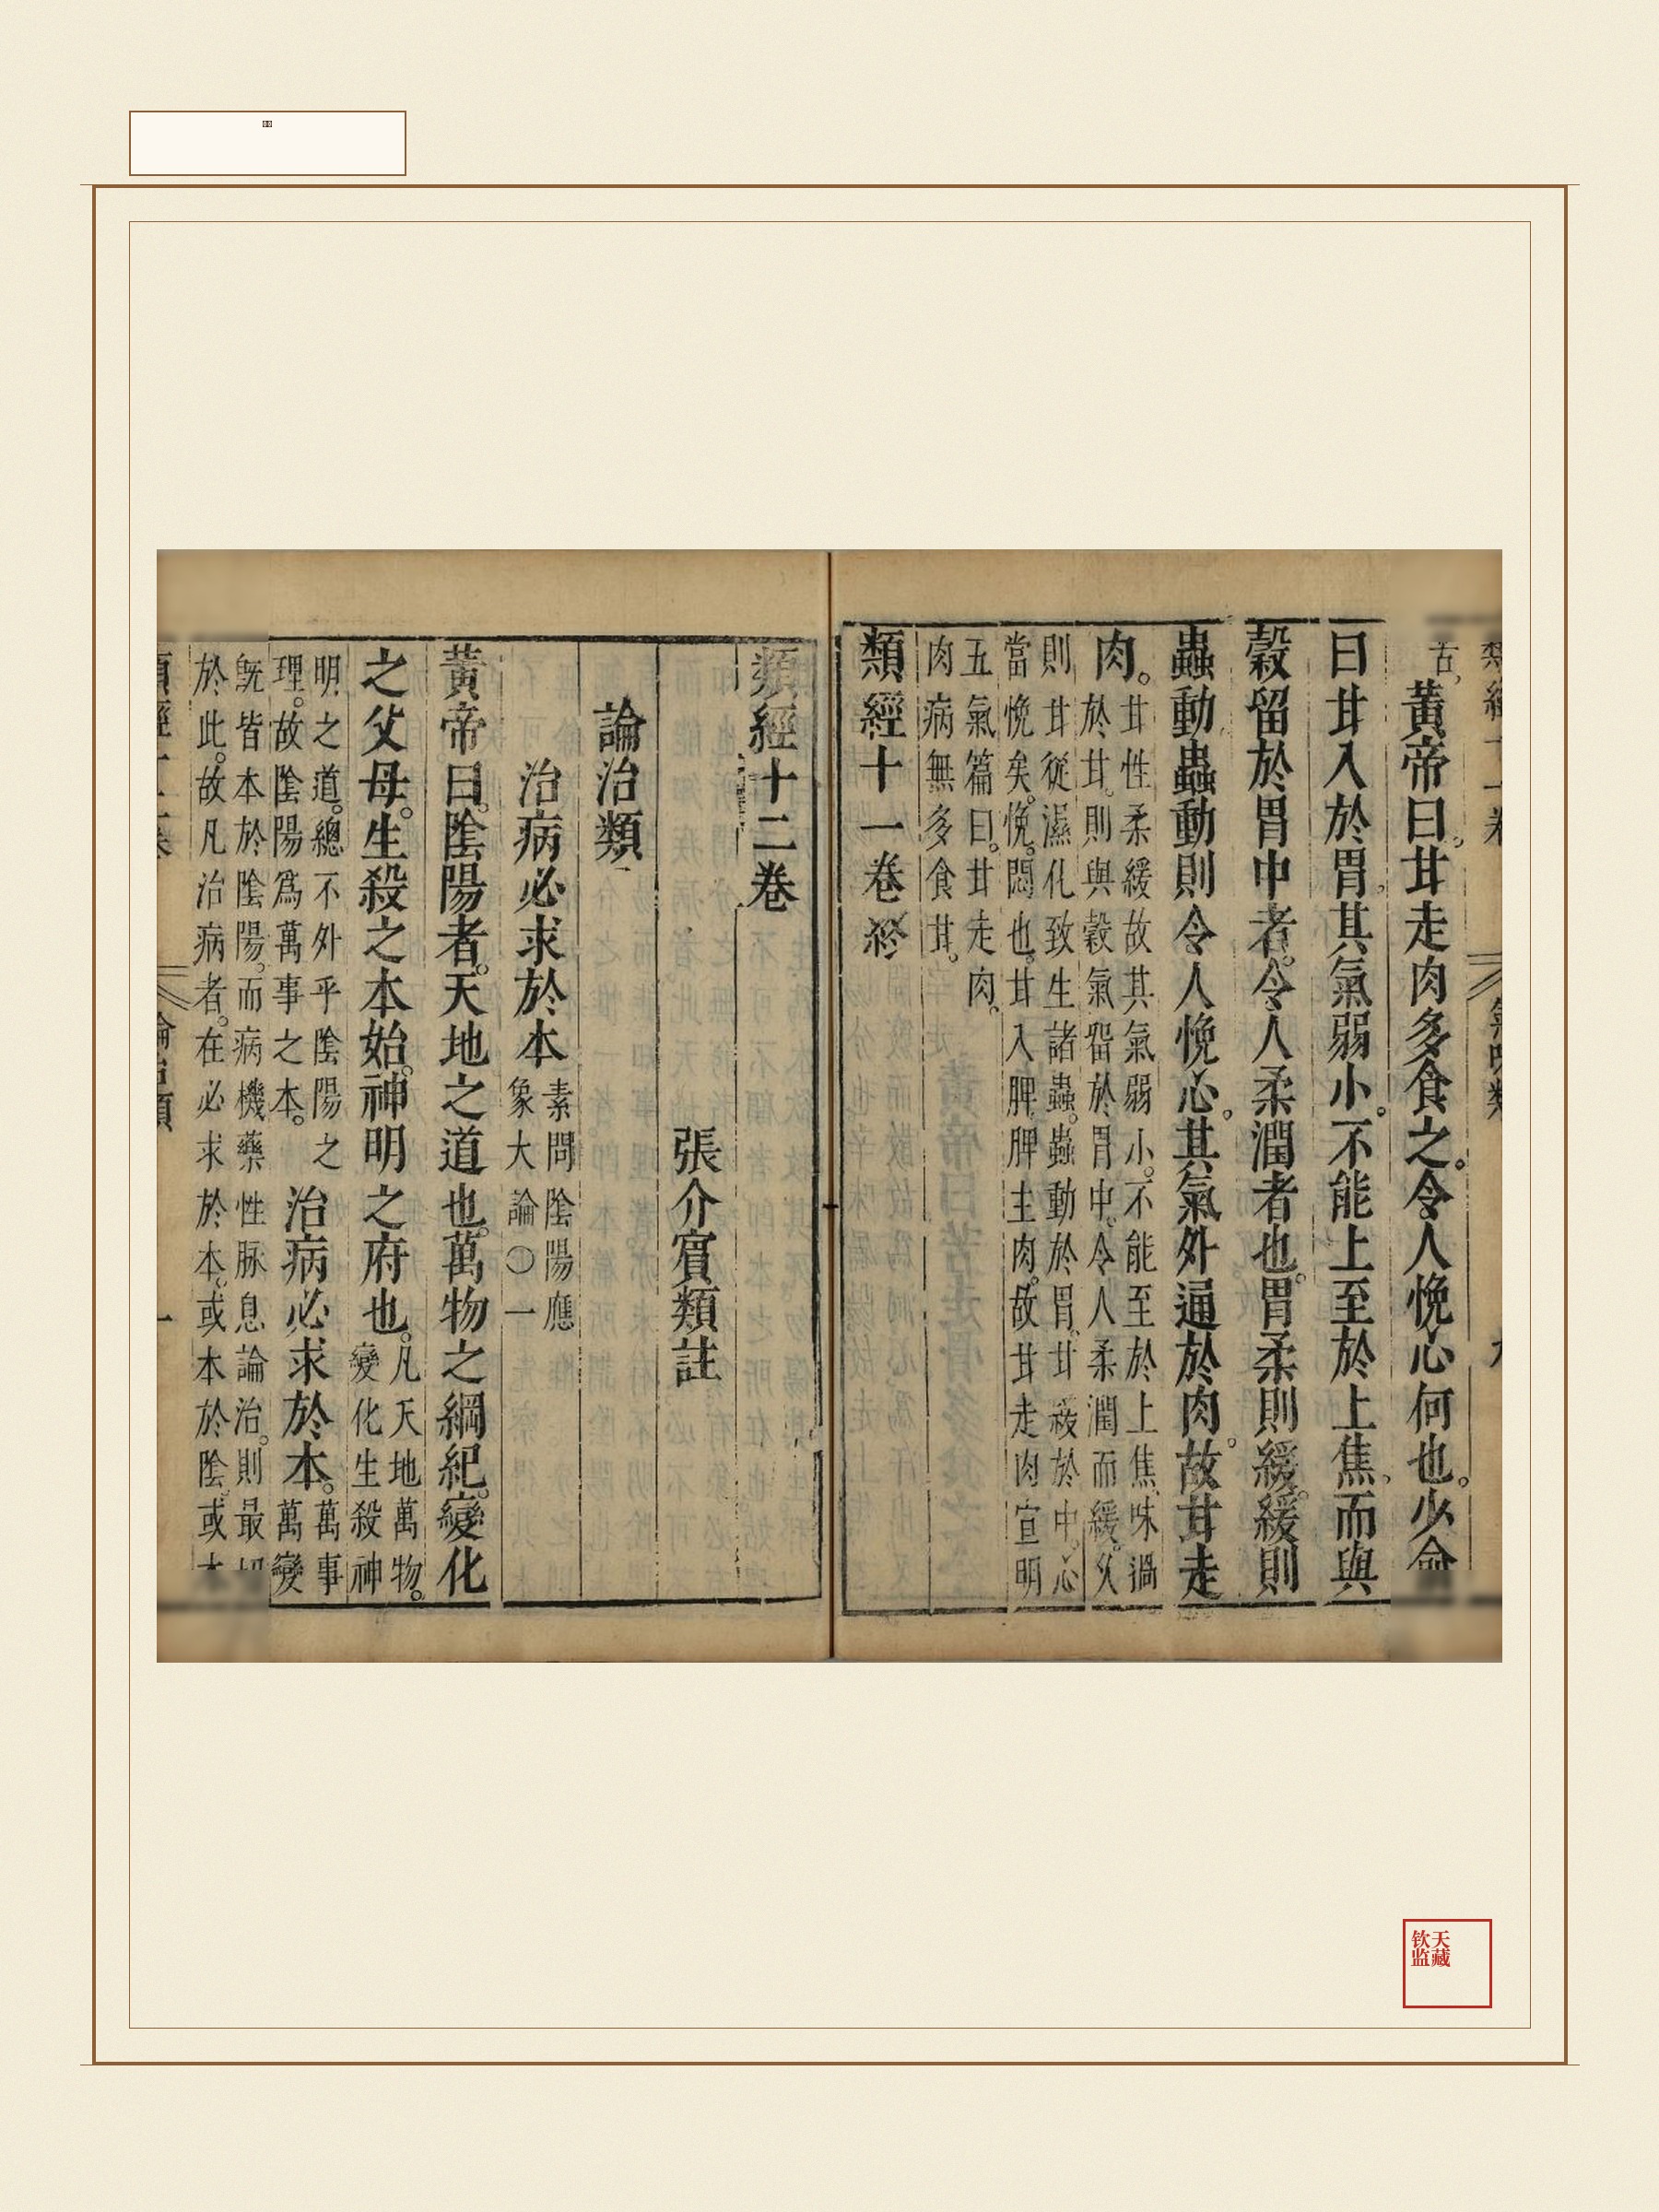 古。
黃帝曰。甘走肉多食之。令人悗心何也。少俞
曰甘入於胃。其氣弱小。不能上至於上焦。而與
穀留於胃中者。令人柔潤者也。胃柔則緩。緩則
蟲動蟲動則令人悗心。其氣外通於肉。故甘走
肉。
甘性柔緩故其氣弱小。不能至於上焦味過
於甘。則與穀氣留於胃中。令人柔潤而緩。久
則甘從濕化致生諸蟲。蟲動於胃。甘緩於中。心
當悗矣。悗。悶也。甘入脾脾主肉。故甘走肉宣明
五氣篇曰。甘走肉。
肉病無多食甘。
類經十一卷終
類經十二卷
張介賓類註
論治類
治病必求於本
素問陰陽應
象大論〇一
黃帝曰。陰陽者。天地之道也。萬物之綱紀。變化
之父母。生殺之本始。神明之府也。
凡天地萬物。
變化生殺神
明之道。總不外乎陰陽之
理。故陰陽爲萬事之本。
治病必求於本。
萬事
萬變
旣皆本於陰陽。而病機藥性脉息論治。則最
於此。故凡治病者。在必求於本。或本於陰。或
天藏
钦监